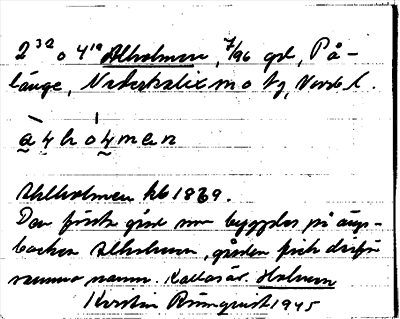 2³² o 4¹⁹ Alholmen, 7/96 gd, På-
länge, Nederkalix sn o tg, Nordb l.
a l h o l m e n
Ahlholmen kb 1869.
Den första gård som byggdes på ängs-
backen Alholmen, gården fick därför
samma namn. Kallas är Holmen
Kerstin 1945